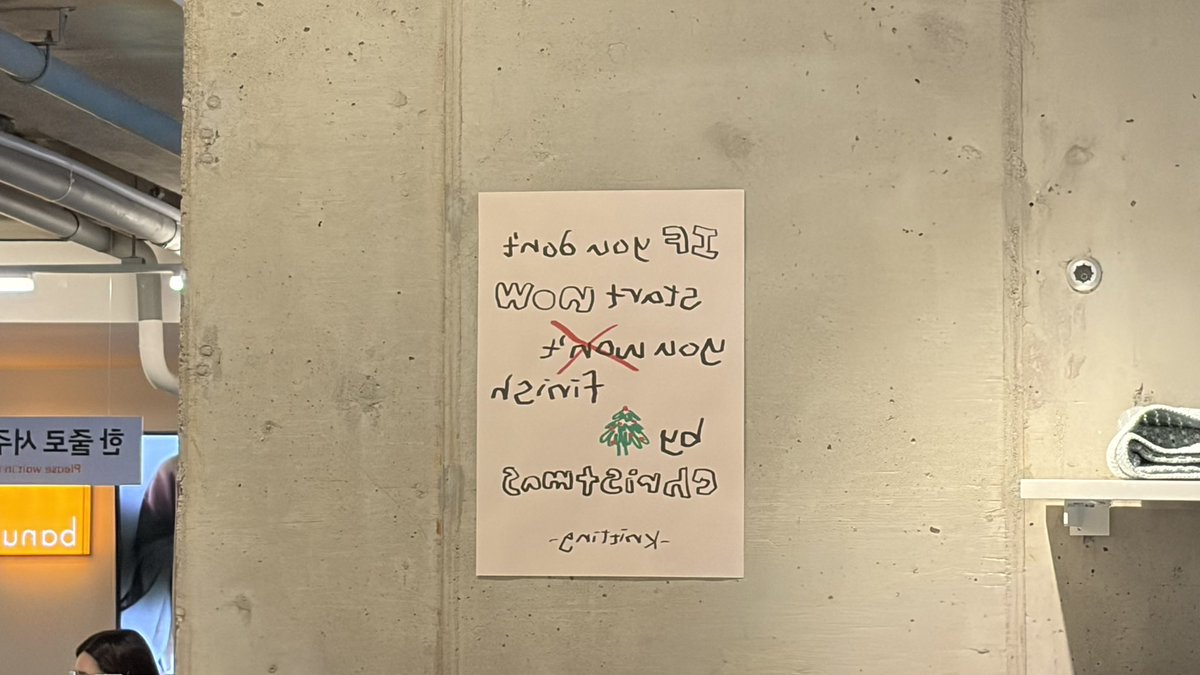 IF you don't
start NOW
you won't
finish
by
Christmas
-Knitting-
한 줄로 서주
Please wait in
banu